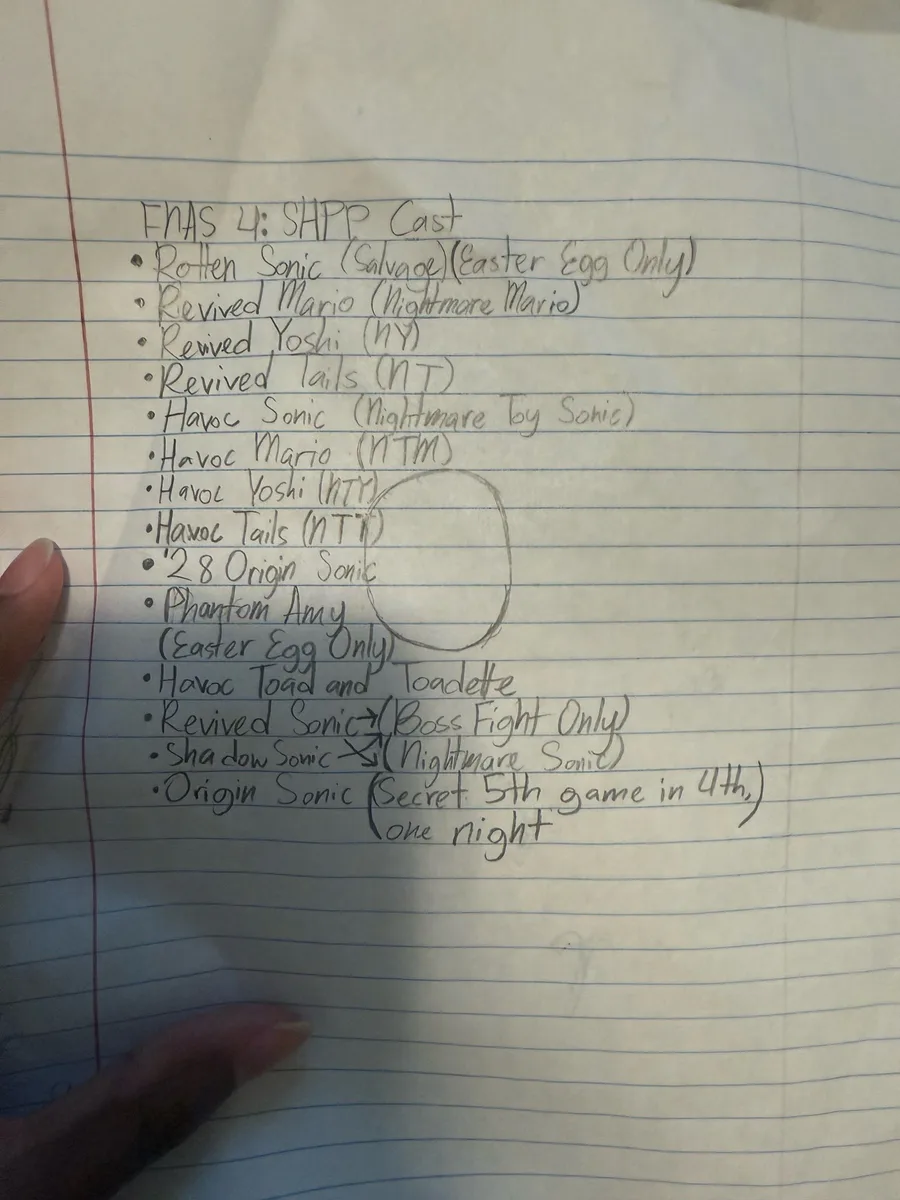 FNAS 4: SHPP Cast
• Rotten Sonic (Salvage)(Easter Egg Only)
• Revived Mario (Nightmare Mario)
• Revived Yoshi (NY)
• Revived Tails (NT)
• Havoc Sonic (Nightmare Toy Sonic)
• Havoc Mario (NTM)
• Havoc Yoshi (NTY)
• Havoc Tails (NTT)
• '28 Origin Sonic
• Phantom Amy
(Easter Egg Only)
• Havoc Toad and Toadette
• Revived Sonic → (Boss Fight Only)
• Shadow Sonic (Nightmare Sonic)
• Origin Sonic (Secret 5th game in 4th,
one night)